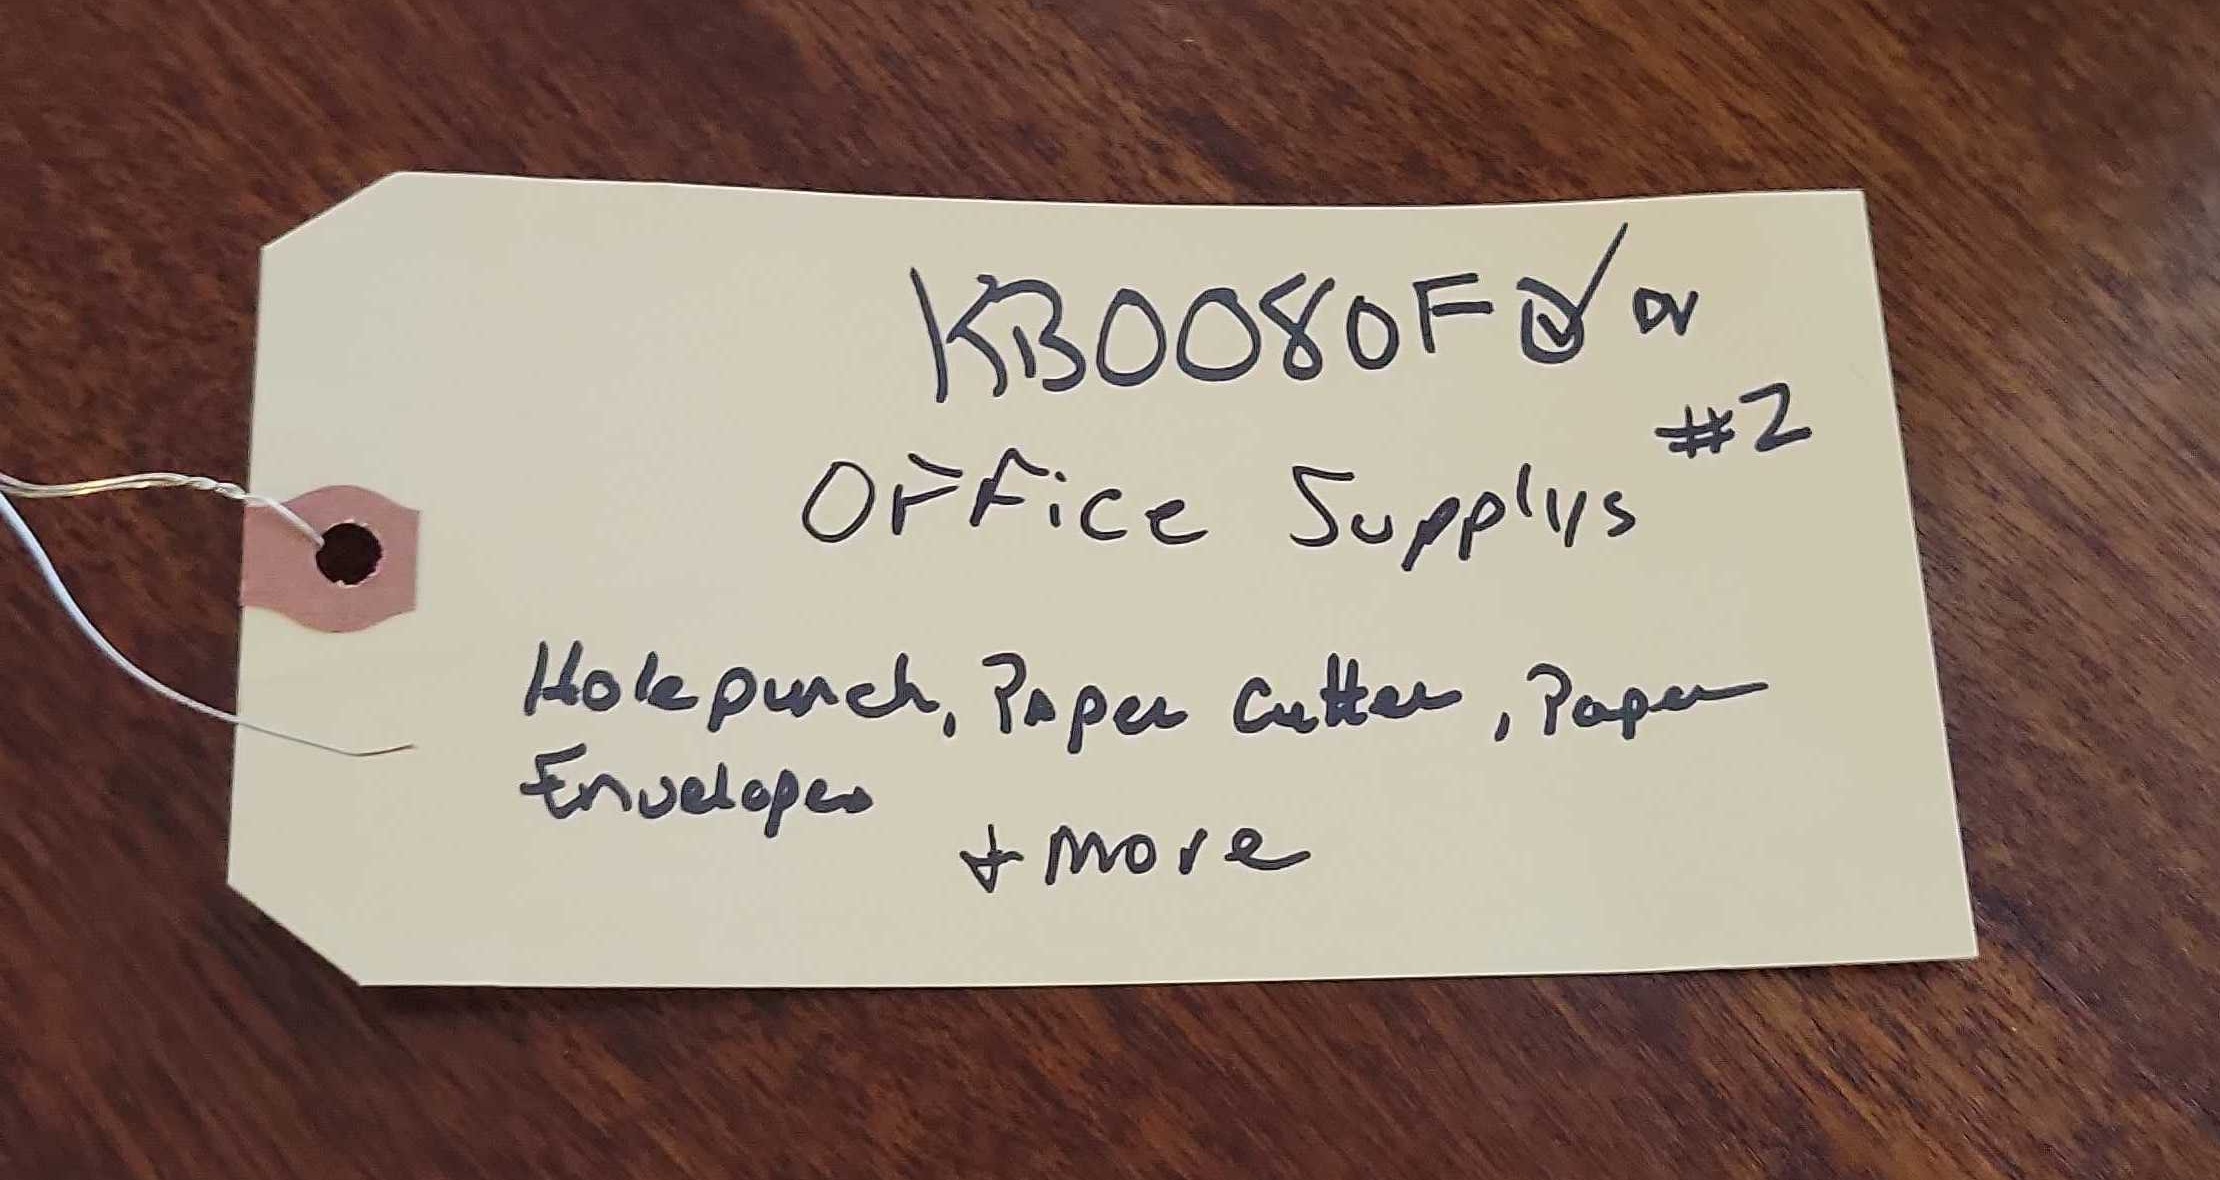 KB0080F ☑ DV
#2
Office Supplys
Holepunch, Paper Cutter, Paper
Envelopes
+ more